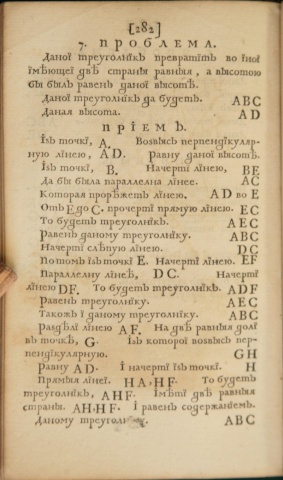 [282]
7. ПРОБЛЕМА.
Даної треуголнікъ превратіть во їної
їмѣющеї двѣ страны равныя, а высотою
бы былъ равенъ даної высотѣ.
Даної треуголнікъ да будетъ. ABC
Даная высота. AD
ПРІЕМЪ.
Їзъ точкї, A. Возвысь перпендїкуляр-
ную лїнею, AD. Равну даної высотѣ.
Їзъ точкї, B. Начерти лїнею, BE
Да бы была параллелна лїнее. AC
Которая прорѣжетъ лїнею. AD во E
Отъ E до C. прочерти прямую лїнею. EC
То будетъ треуголнїкъ. AEC
Равенъ даному треуголнїку. ABC
Начерти слѣпую лїнею. DC
Потомъ їзъ точкї E. Начерти лїнею. EF
Параллелну лїнеѣ, DC. Начерти
лїнею DF. То будетъ треуголнїкъ. ADF
Равенъ треуголнїку. AEC
Такожъ ї даному треуголнїку. ABC
Раздѣлї лїнею AF. На двѣ равныя долї
въ точкѣ, G. Їзъ которої возвысь пер-
пендїкулярную. GH
Равну AD. Ї начерти їзъ точкї. H
Прямыя лїнеї. HA, HF. То будетъ
треуголнїкъ, AHF. Їмѣтї двѣ равныя
страны. AH, HF. Ї равенъ содержанїемъ.
Даному треуголнїку. ABC